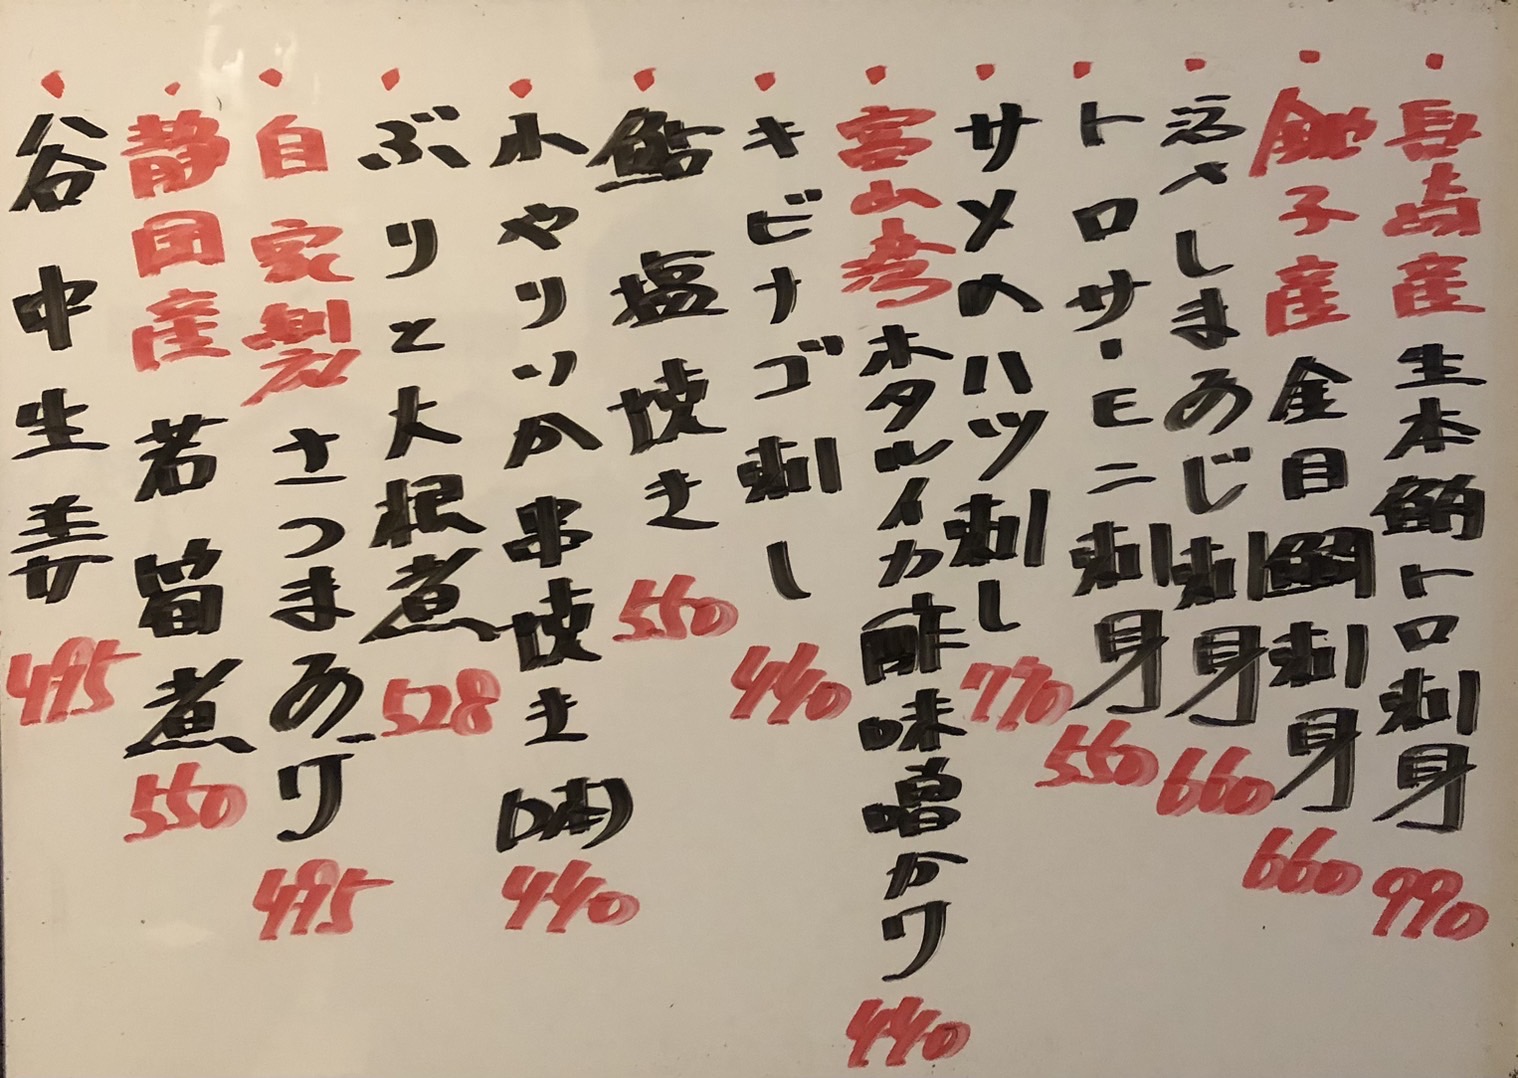 長崎産 生本鮪トロ刺身 990
銚子産 金目鯛刺身 660
活〆しまあじ刺身 660
トロサーモン刺身 550
サメのハツ刺し 770
富山湾 ホタルイカ酢味噌かけ 440
キビナゴ刺し 440
鮎塩焼き 550
小やりいか串焼き(1本) 440
ぶりと大根煮 528
自家製 さつまあげ 495
静岡産 若筍煮 550
谷中生姜 495